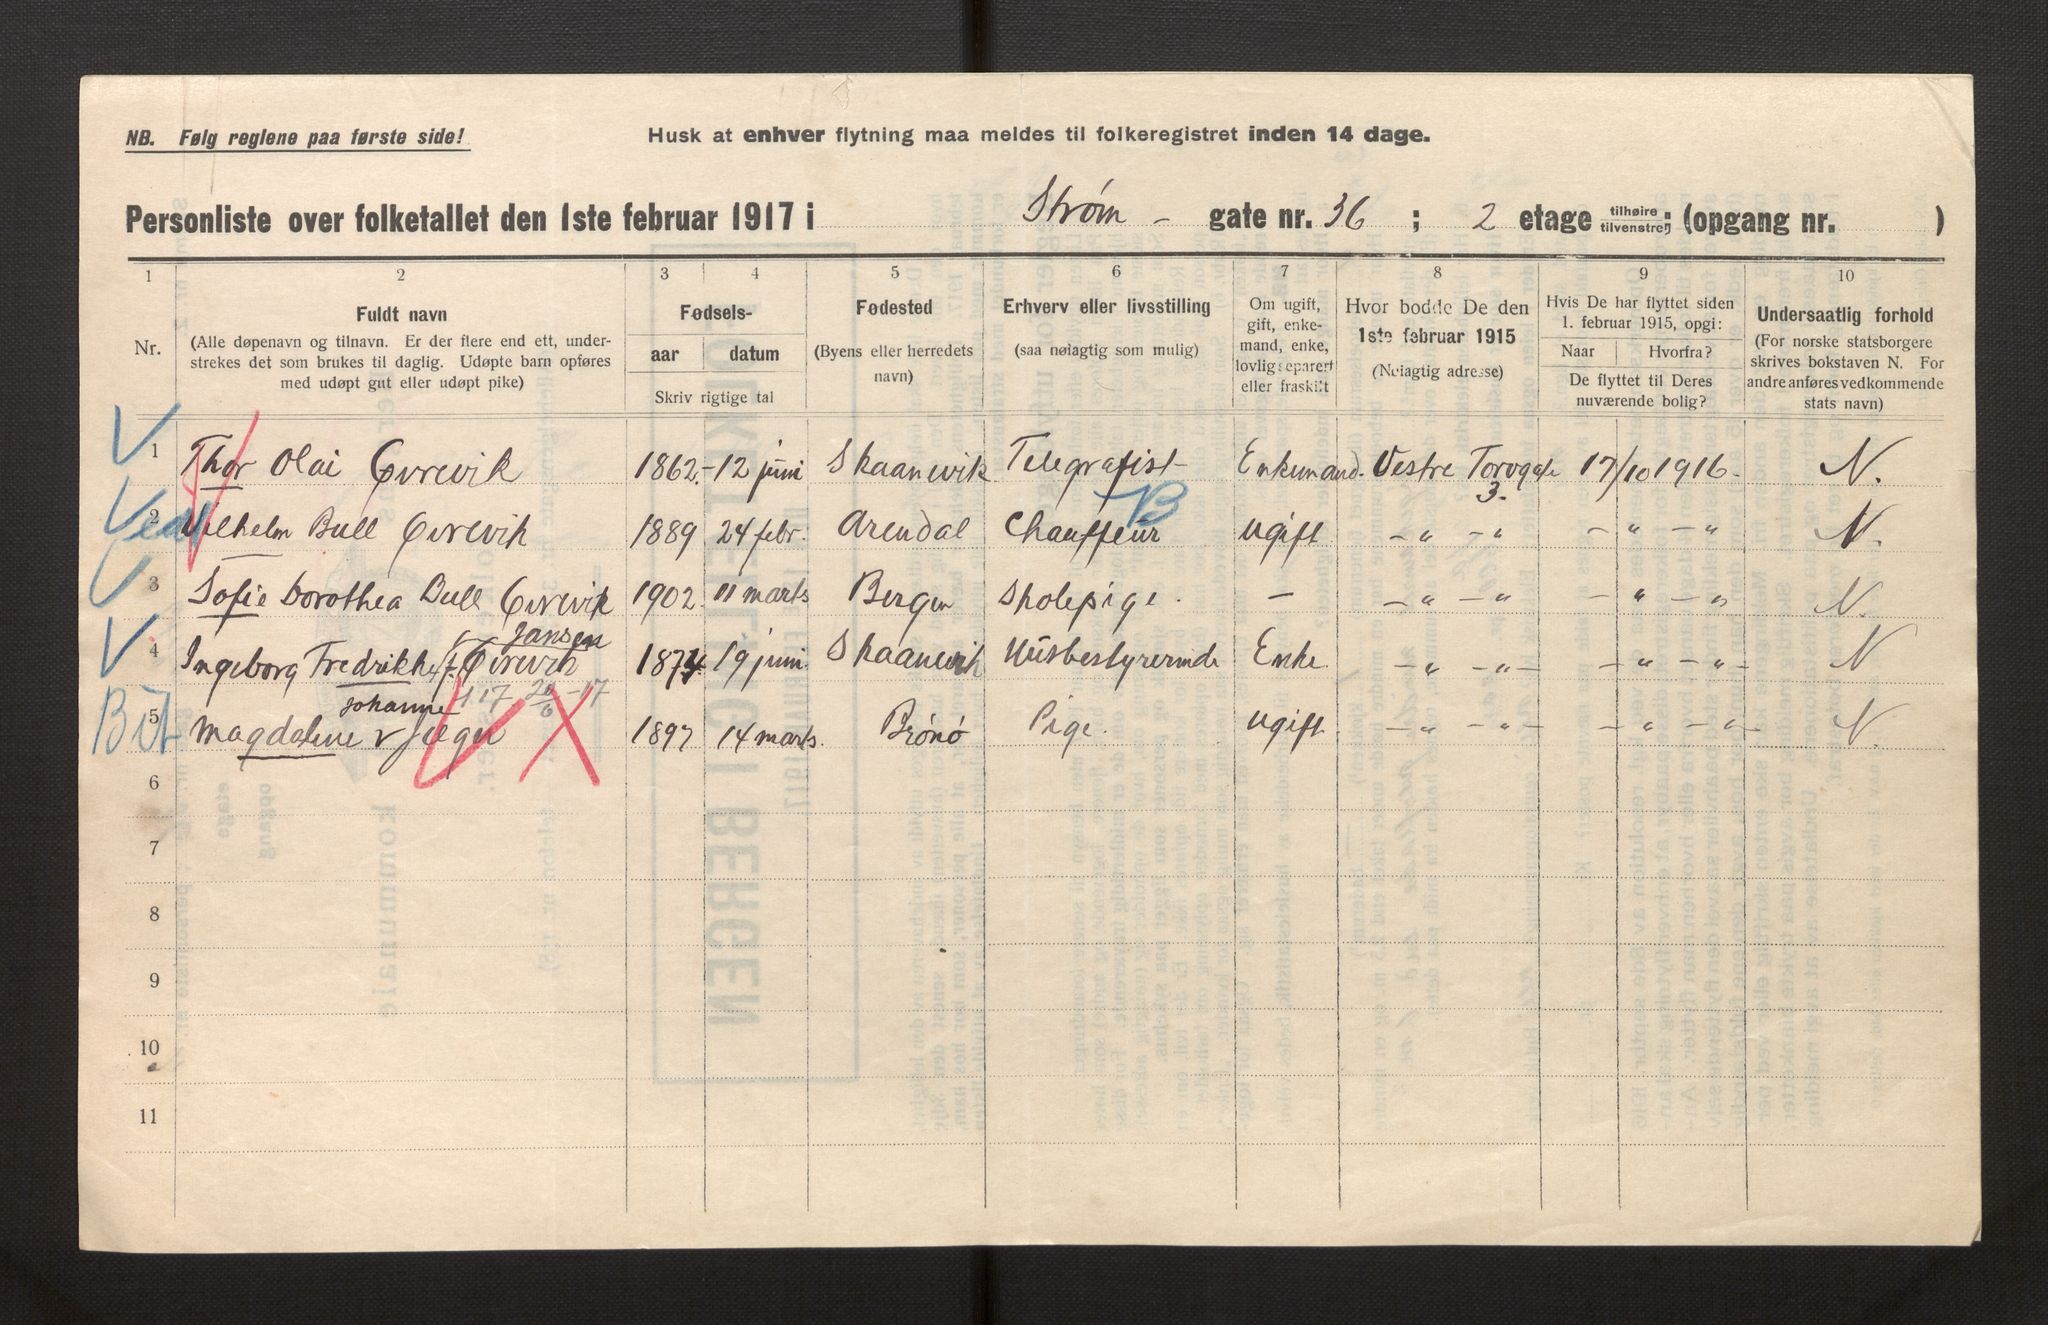 NB. Følg reglene paa første side!
Husk at enhver flytning maa meldes til folkeregistret inden 14 dage.
Personliste over folketallet den 1ste februar 1917 i Strøm - gate nr. 36 ; 2 etage tilhøire tilvenstre; (opgang nr. )
1 2 3 4 5 6 7 8 9 10
Nr.
Fuldt navn
(Alle døpenavn og tilnavn. Er der flere end ett, under-
strekes det som brukes til daglig. Udøpte barn opføres
med udøpt gut eller udøpt pike)
Fødsels-
aar datum
Skriv rigtige tal
Fødested
(Byens eller herredets
navn)
Erhverv eller livsstilling
(saa nøiagtig som mulig)
Om ugift,
gift, enke-
mand, enke,
lovlig separert
eller fraskilt
Hvor bodde De den
1ste februar 1915
(Nøiagtig adresse)
Hvis De har flyttet siden
1. februar 1915, opgi:
Naar Hvorfra?
De flyttet til Deres
nuværende bolig?
Undersaatlig forhold
(For norske statsborgere
skrives bokstaven N. For
andre anføres vedkommende
stats navn)
1 Thor Olai Evrevik 1862.- 12 juni Skaanevik Telegrafist Enkemand. Vestre Torvgate 3. 17/10 1916 - N.
B
2 Wilhelm Bull Evrevik 1889 24 febr. Arendal Chauffeur ugift - " - " - - " - " - N.
3 Sofie Dorothea Bull Evrevik 1902. 11 marts Bergen Skolepige. - - " - " - - " - " - N.
Jansen
4 Ingeborg Fredrikke f. Evrevik 1874 19 juni. Skaanevik Husbestyrerinde Enke. - " - " - - " - " - N
Johanne 117 20/6 -17
5 Magdalene Jæger 1897 14 marts. Brønø Pige. ugift. - " - " - - " - " - N.
6
7
8
9
10
11